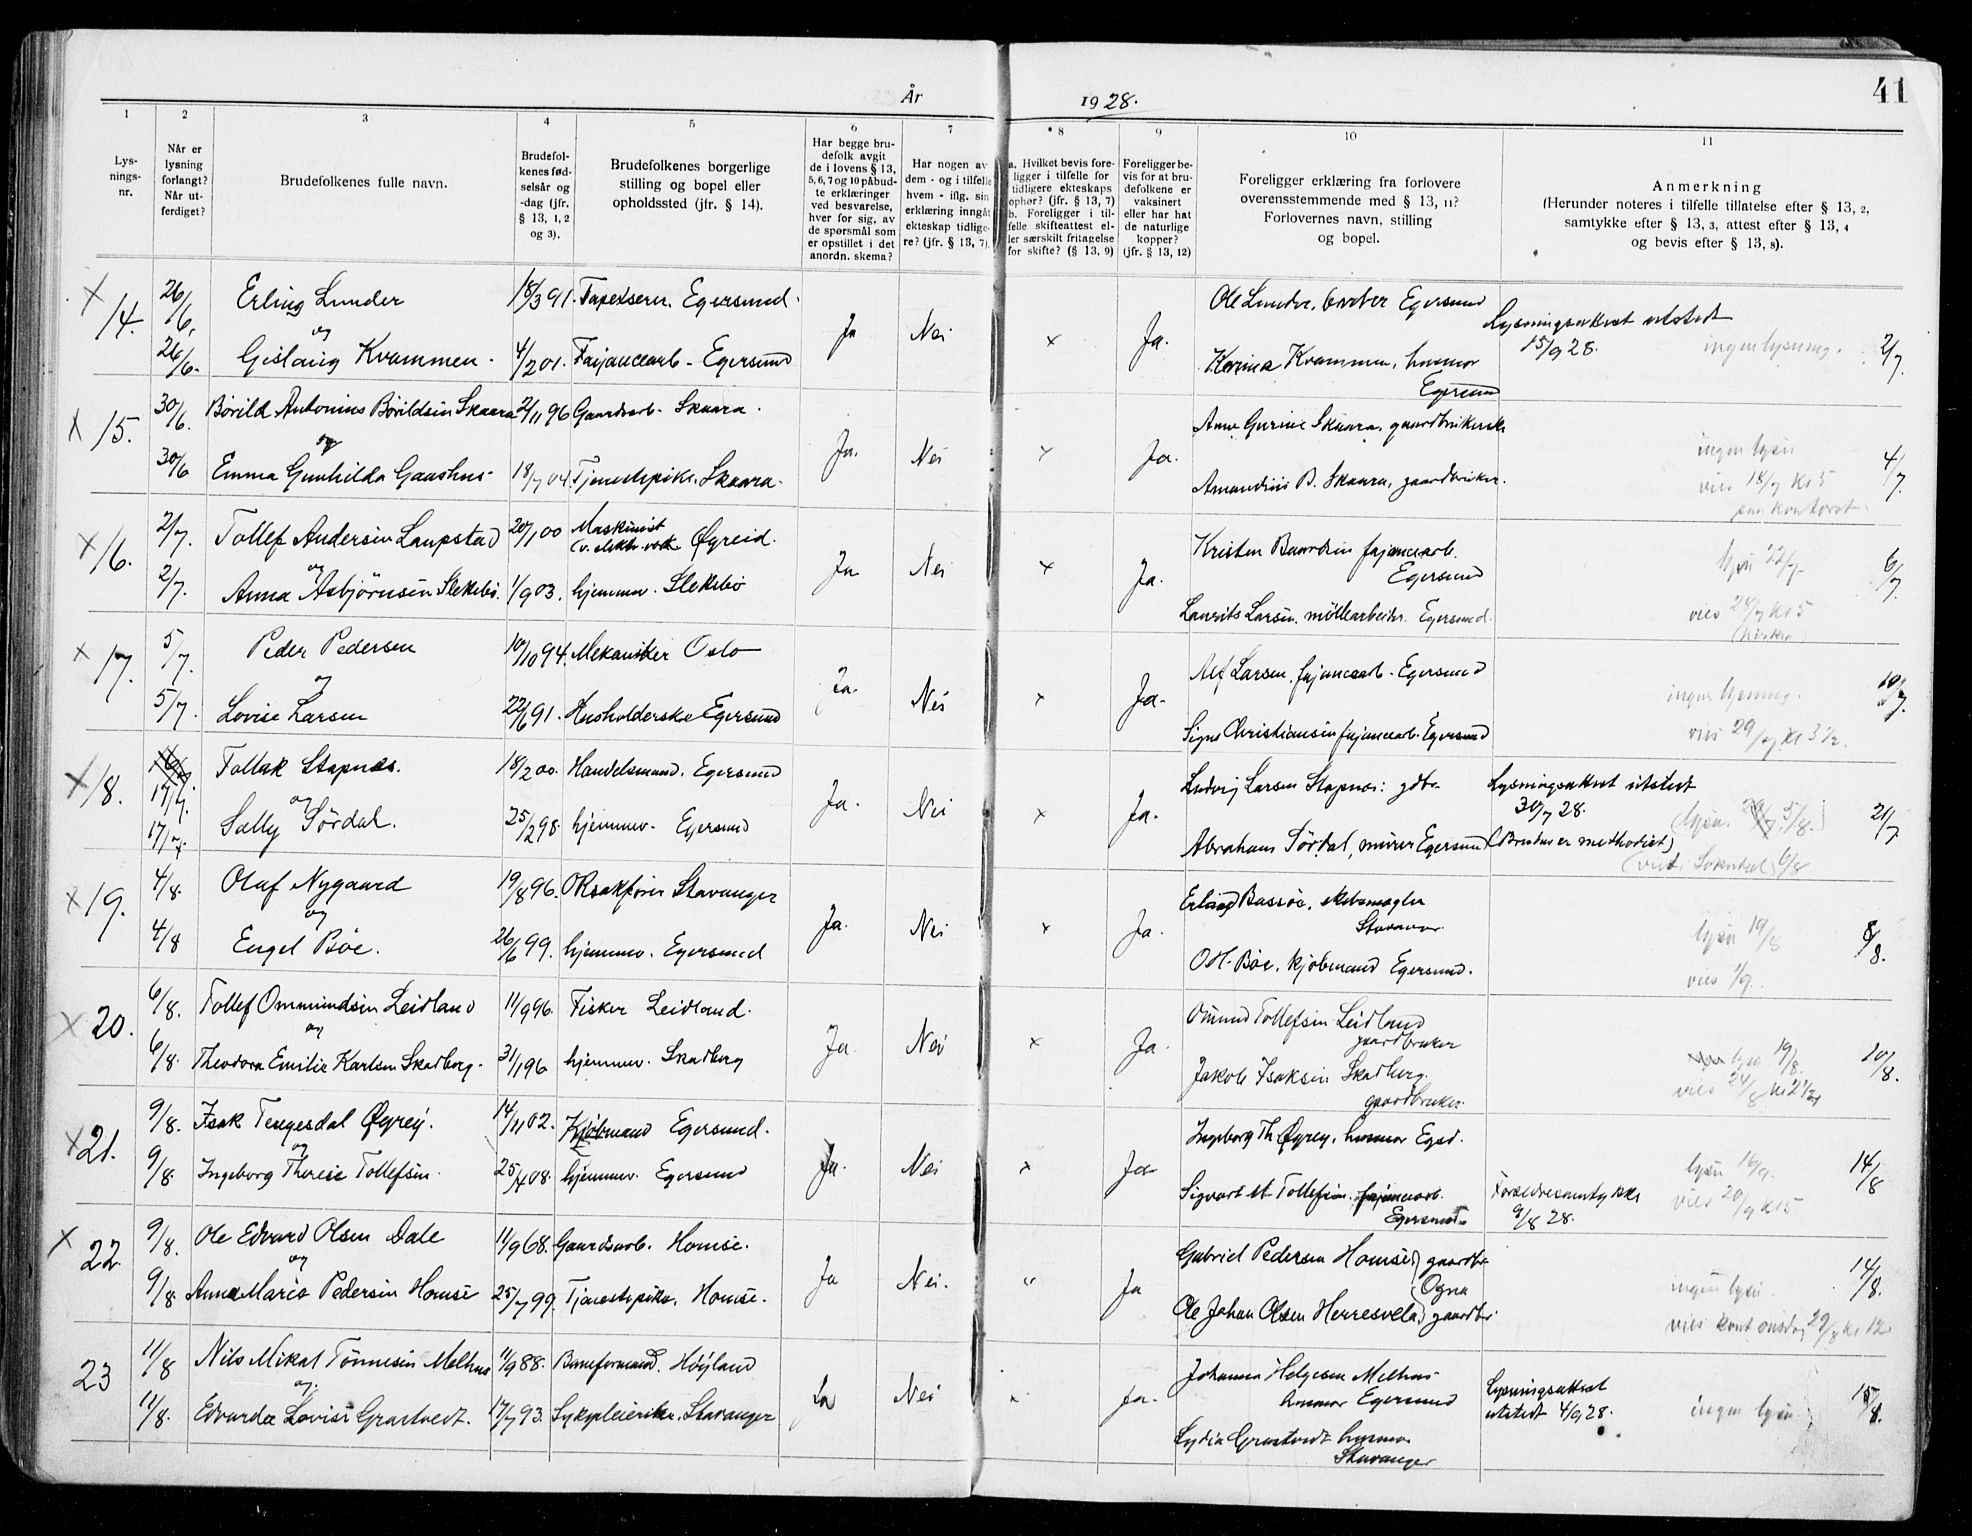 År 1928. 41
1 2 3 4 5 6 7 8 9 10 11
Lys-
nings-
nr.
Når er
lysning
forlangt?
Når ut-
ferdiget?
Brudefolkenes fulle navn.
Brudefol-
kenes fød-
selsår og
-dag (jfr.
§ 13, 1, 2
og 3).
Brudefolkenes borgerlige
stilling og bopel eller
opholdssted (jfr. § 14).
Har begge bru-
defolk avgit
de i lovens § 13,
5, 6, 7 og 10 påbud-
te erklæringer
ved besvarelse,
hver for sig, av
de spørsmål som
er opstillet i det
anordn. skema?
Har nogen av
dem - og i tilfelle
hvem - iflg. sin
erklæring inngåt
ekteskap tidlige-
re? (jfr. § 13, 7).
a. Hvilket bevis fore-
ligger i tilfelle for
tidligere ekteskaps
ophør? (jfr. § 13, 7)
b. Foreligger i til-
felle skifteattest el-
ler særskilt fritagelse
for skifte? (§ 13, 9)
Foreligger be-
vis for at bru-
defolkene er
vaksinert
eller har hat
de naturlige
kopper?
(jfr. § 13, 12)
Foreligger erklæring fra forlovere
overensstemmende med § 13, 11?
Forlovernes navn, stilling
og bopel.
Anmerkning
(Herunder noteres i tilfelle tillatelse efter § 13, 2,
samtykke efter § 13, 3, attest efter § 13, 4
og bevis efter § 13, 8).
x 14. 26/6. Erling Lunder 18/3 91. Tapetserer. Egersund. Ja Nei x Ja. Ole Lunder, Egersund
Lysningsattest utstedt
15/9 28. ingen lysning. 2/7.
og
26/6. Gislaug Kvammen. 4/2 01. Fajancearb. Egersund
Karina Kvammen, husmor
Egersund
x 15. 30/6. Børild Antonius Børildsen Skaara 2/11 96 Gaardsarb. Skaara. Ja. Nei x Ja. Anne Gurine Skaara, gaardbrukerske
og
30/6 Emma Gunhilda Gaashus 18/7 04. Tjenestepike. Skaara.
Amandus B. Skaara, gaardbruker.
ingen lysn
vies 18/7 kl 5
kontoret. 4/7.
x 16. 2/7. Tollef Andersen Laupstad 20/1 00 Maskinist
Øgreid. Ja Nei x Ja. Kristen Baardsen fajancearb.
Egersund
og
2/7. Anna Asbjørnsen Slettebø. 1/9 03. hjemmev. Slettebø
Laurits Larsen, møllearbeider. Egersund.
lysn 22/7
vies 28/7 kl 5
6/7
x 17. 5/7. Peder Pedersen 10/10 94. Mekaniker Oslo Ja. Nei x Ja. Alf Larsen, fajancearb. Egersund
og
5/7. Lovise Larsen 22/6 91. Husholderske Egersund
Signe Christiansen fajancearb. Egersund
ingen lysning.
vies 29/7 kl 3 1/2. 10/7.
x 18. 17/7. Tollak Stapnes. 18/2 00. Handelsmand. Egersund Ja. Nei x Ja. Ludvig Larsen Stapnes: gdbr
Lysningsattest utstedt
30/7 28. 21/7.
og
17/7. Sally Sørdal. 25/2 98. hjemmev. Egersund
Abraham Sørdal, murer Egersund (Bruden er methodist)
(viet i Sokndal 6/8
x 19. 4/8. Olaf Nygaard 19/8 96. ORsakfører Stavanger Ja. Nei x Ja. Erling Bassøe, skibsmægler
Stavanger
og
4/8 Engel Bøe. 26/6 99. hjemmev. Egersund
O.H. Bøe, kjøbmand Egersund.
lysn 19/8
vies 1/9. 8/8.
x 20. 6/8. Tollef Ommundsen Leidland 11/9 96. Fisker Leidland. Ja. Nei x Ja Omund Tollefsen Leidland
gaardbruker
og
6/8. Theodora Emilie Karlsen Skadberg. 31/1 96 hjemmev. Skadberg
Jakob Isaksen Skadberg.
gaardbruker.
lysn 19/8.
vies 24/8 kl 2 1/2 10/8.
x 21. 9/8. Isak Tengesdal Øgrey. 14/11 02. Kjøbmand Egersund. Ja. Nei x Ja Ingeborg Th. Øgrey, husmor Egsd.
og
9/8. Ingeborg Therese Tollefsen. 25/4 08. hjemmev. Egersund
Sigvart M. Tollefsen. fajancearb.
Egersund
Foreldresamtykke
9/8 28.
lysn 16/9.
vies 20/9 kl 5 14/8
x 22. 9/8. Ole Edvard Olsen Dale 11/9 68. Gaardsarb. Homse. Ja Nei. " Ja Gabriel Pedersen Homse) gaardbr
(Ogna
og
9/8. Anna Maria Pedersen Homse 25/7 99. Tjenestepike. Homse.
Ole Johan Olsen Herresvela) gaardbr
ingen lysn.
vies kont onsdag 29/8 kl 12 14/8.
23 11/8 Nils Mikal Tønnesen Melhus 11/9 88. Baneformand. Høyland Ja Nei Ja. Johanna Helgesen Melhus
husmor Egersund
og.
11/8. Edvarda Lovise Grastvedt. 17/7 93. Sykepleierske. Stavanger
Lydia Grastvedt husmor
Stavanger
Lysningsattest
utstedt 4/9 28.
ingen lysn 15/8.